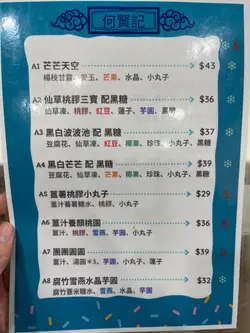 何賢記
A1 芒芒天空 $43
楊枝甘露、愛玉、芒果、水晶、小丸子
A2 仙草桃膠三寶 配黑糖 $36
仙草凍、桃膠、紅豆、蓮子、芋圓、黑糖
A3 黑白波波池 配 黑糖 $37
豆腐花、仙草凍、紅豆、椰果、珍珠、小丸子、黑糖
A4 黑白芒芒 配 黑糖 $39
豆腐花、仙草凍、芒果、椰果、珍珠、小丸子、黑糖
A5 薑薯桃膠小丸子 $29
薑汁蕃薯糖水、桃膠、小丸子
A6 薑汁養顏桃園 $36
薑汁、桃膠、雪燕、芋圓、小丸子
A7 團團圓圓 $39
薑汁、湯圓*3、芋圓、小丸子、蓮子
A8 腐竹雪燕水晶芋圓 $32
腐竹薏米糖水、雪燕、水晶、芋圓